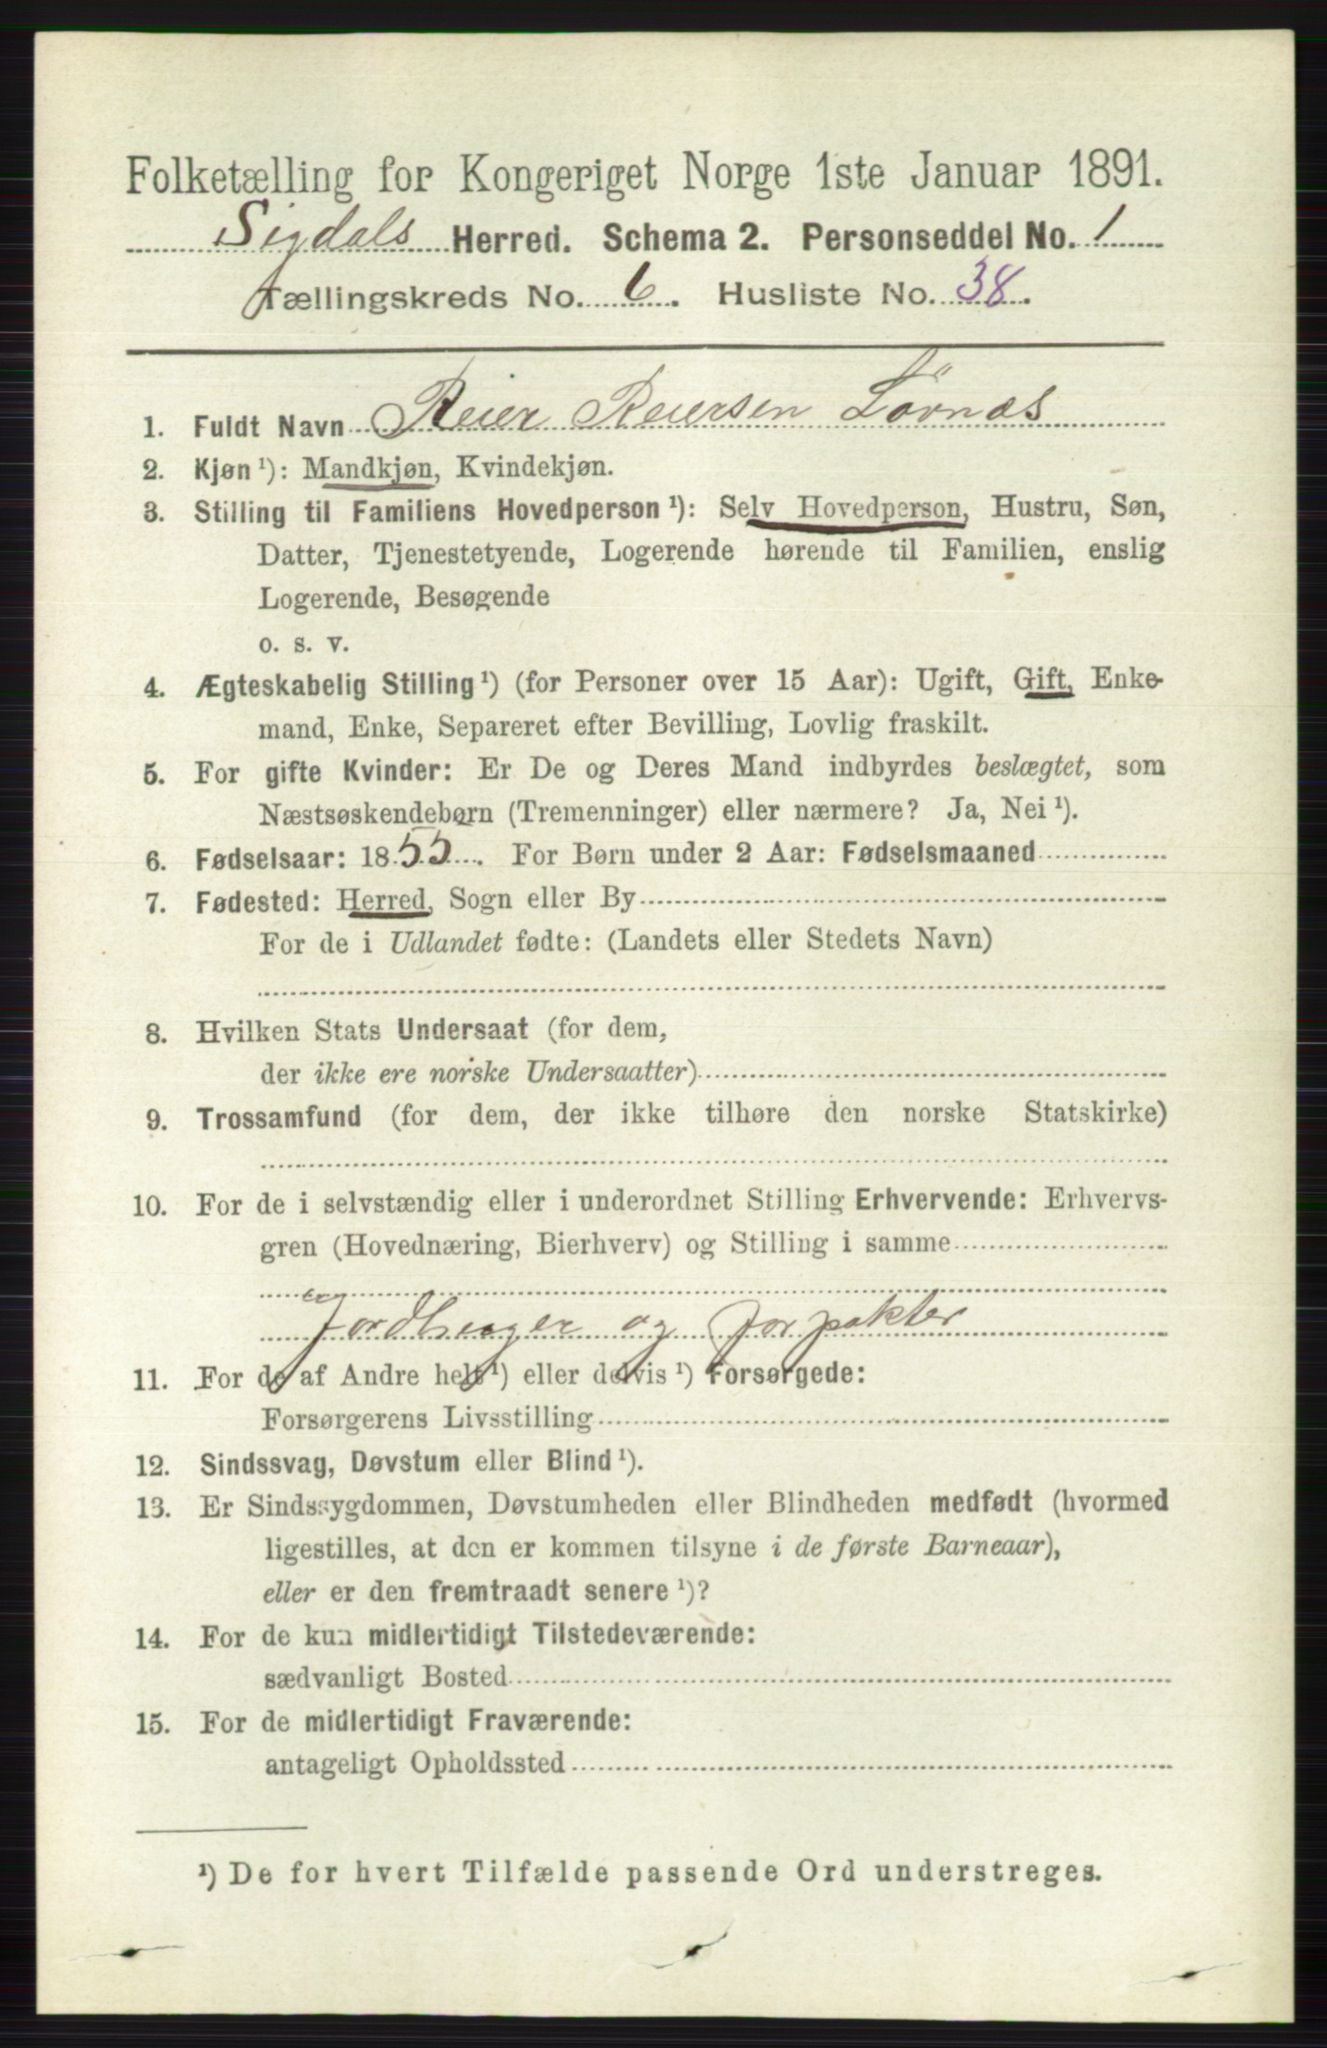 Folketælling for Kongeriget Norge 1ste Januar 1891.
Sigdals Herred. Schema 2. Personseddel No. 1
Tællingskreds No. 6. Husliste No. 38.
1. Fuldt Navn Reier Reiersen Lövnæs
2. Kjøn¹): Mandkjøn, Kvindekjøn.
3. Stilling til Familiens Hovedperson¹): Selv Hovedperson, Hustru, Søn,
Datter, Tjenestetyende, Logerende hørende til Familien, enslig
Logerende, Besøgende
o. s. v.
4. Ægteskabelig Stilling¹) (for Personer over 15 Aar): Ugift, Gift, Enke-
mand, Enke, Separeret efter Bevilling, Lovlig fraskilt.
5. For gifte Kvinder: Er De og Deres Mand indbyrdes beslægtet, som
Næstsøskendebørn (Tremenninger) eller nærmere? Ja, Nei¹).
6. Fødselsaar: 1855. For Børn under 2 Aar: Fødselsmaaned
7. Fødested: Herred, Sogn eller By
For de i Udlandet fødte: (Landets eller Stedets Navn)
8. Hvilken Stats Undersaat (for dem,
der ikke ere norske Undersaatter)
9. Trossamfund (for dem, der ikke tilhøre den norske Statskirke)
10. For de i selvstændig eller i underordnet Stilling Erhvervende: Erhvervs-
gren (Hovednæring, Bierhverv) og Stilling i samme
Jordbruger og Forpakter
11. For de af Andre helt¹) eller delvis¹) Forsørgede:
Forsørgerens Livsstilling
12. Sindssvag, Døvstum eller Blind¹).
13. Er Sindssygdommen, Døvstumheden eller Blindheden medfødt (hvormed
ligestilles, at den er kommen tilsyne i de første Barneaar),
eller er den fremtraadt senere¹)?
14. For de kun midlertidigt Tilstedeværende:
sædvanligt Bosted
15. For de midlertidigt Fraværende:
antageligt Opholdssted
¹) De for hvert Tilfælde passende Ord understreges.